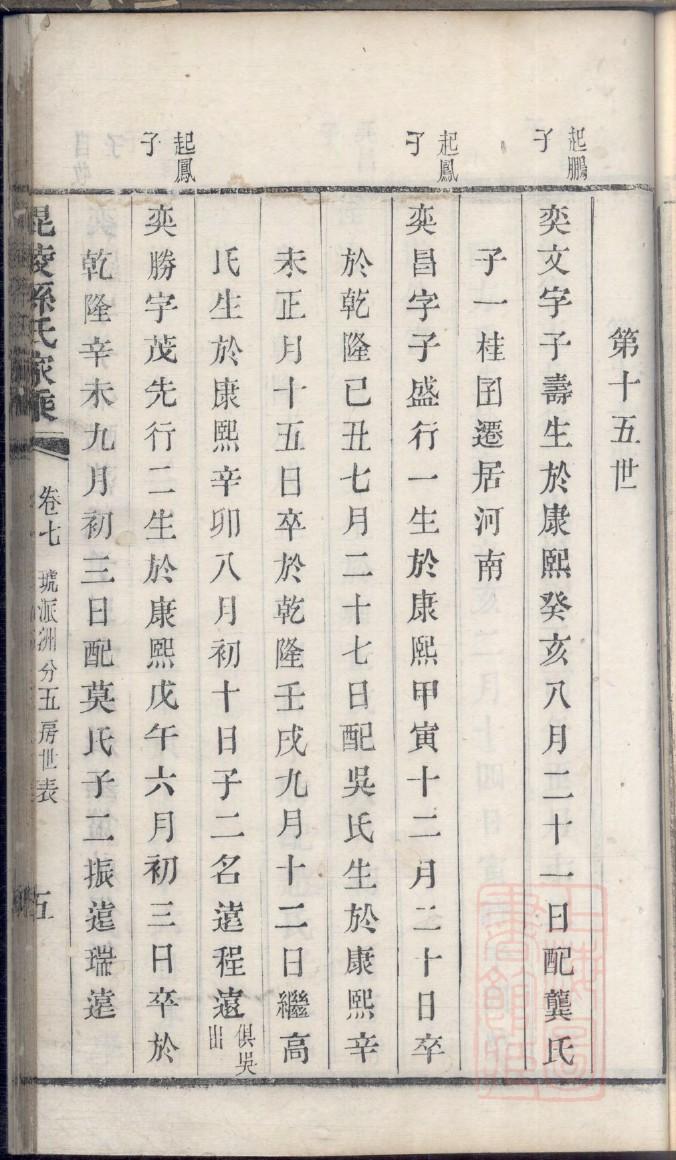 第十五世
起鵬子
奕文字子壽生於康熙癸亥八月二十一日配龔氏
子一桂囝遷居河南
起鳳子
奕昌字子盛行一生於康熙甲寅十二月二十日卒
於乾隆己丑七月二十七日配吳氏生於康熙辛
未正月十五日卒於乾隆壬戌九月十二日繼高
氏生於康熙辛卯八月初十日子二名遠程遠俱吳出
起鳳子
奕勝字茂先行二生於康熙戊午六月初三日卒於
乾隆辛未九月初三日配莫氏子二振遠瑞遠
毘陵孫氏家乘
卷七
琥派洲分五房世表
五
上海圖書館藏